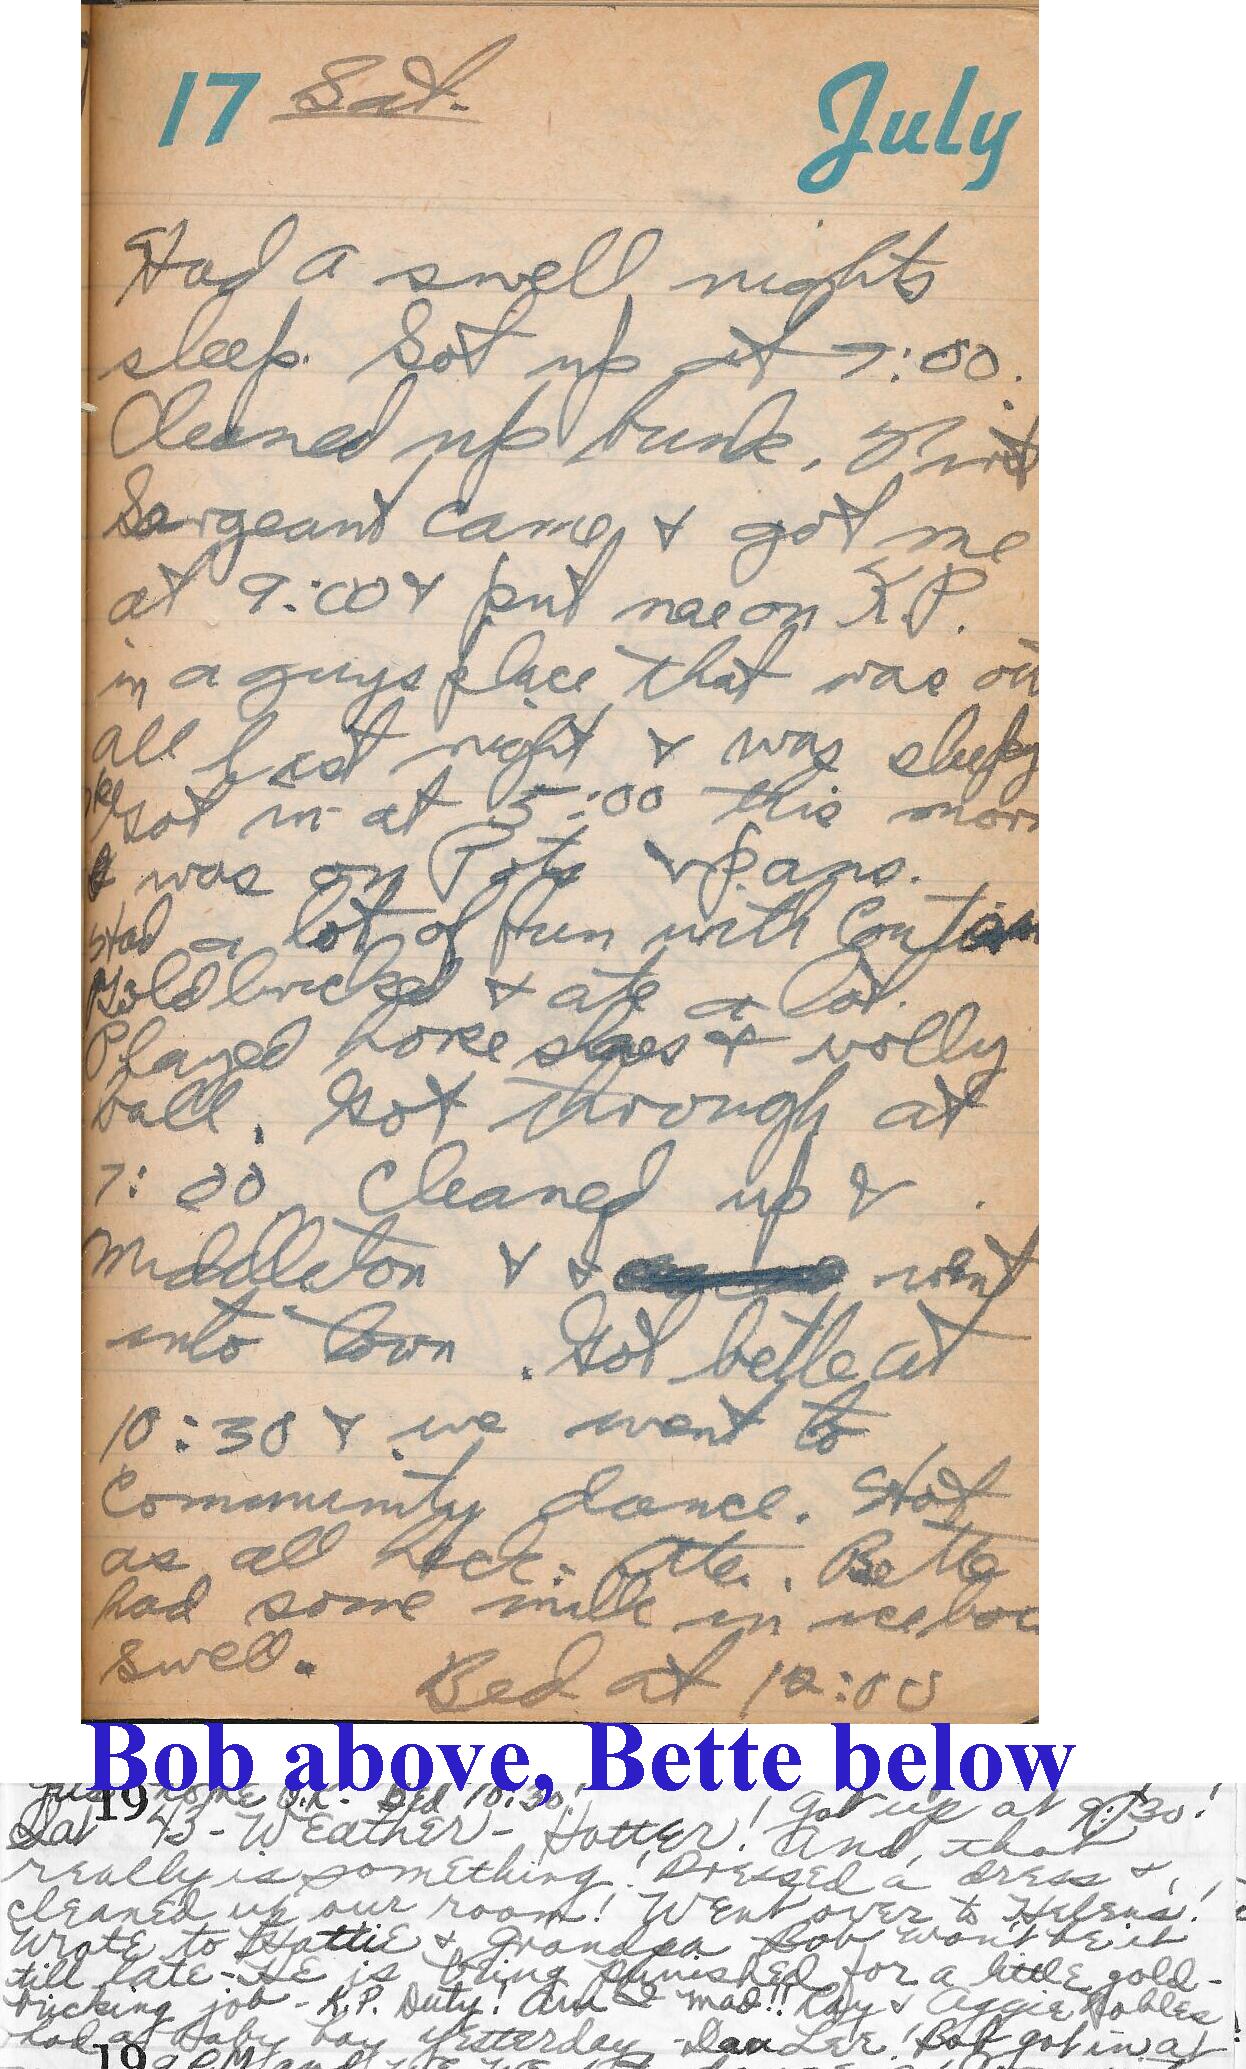 17 Sat. July
Had a swell nights
sleep. Got up at 7:00.
Cleaned up bunk, First
Sergeant came & got me
at 9:00 & put me on K.P.
in a guys place that was out
all last night & was sleepy
He got in at 5:00 this morn
I was on Pots & Pans.
Had a lot of fun with
Goldbricked & ate a lot.
Played horse shoes & volly
ball. Got through at
7:00 Cleaned up &
Middleton & went
into town. Got bette at
10:30 & we went to
Community dance. Hot
as all heck. Ate. Bette
had some milk in icebox
swell. Bed at 12:00
Bob above, Bette below
19 home O.K. Bed 10:30!
Sat 43 - Weather - Hotter! Got up at 9:30!
And, that
really is something! Pressed a dress &
cleaned up our room! Went over to Helens!
Wrote to Hattie & Grandpa Bob won't be in
till late - He is being punished for a little gold-
bricking job - K.P. Duty! Am I mad!! Ray & Aggie Nobles
had a baby boy yesterday - Dan Lee! Bob got in at
19 9 P.M. and we